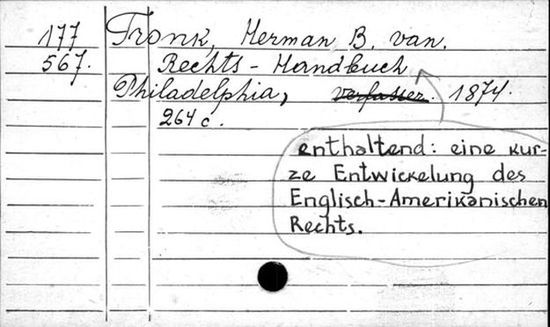 177 Tronk, Herman B. van.
567. Rechts-Handbuch
Philadelphia, verfasser. 1874.
264 c.
enthaltend: eine kur-
ze Entwickelung des
Englisch-Amerikanischen
Rechts.